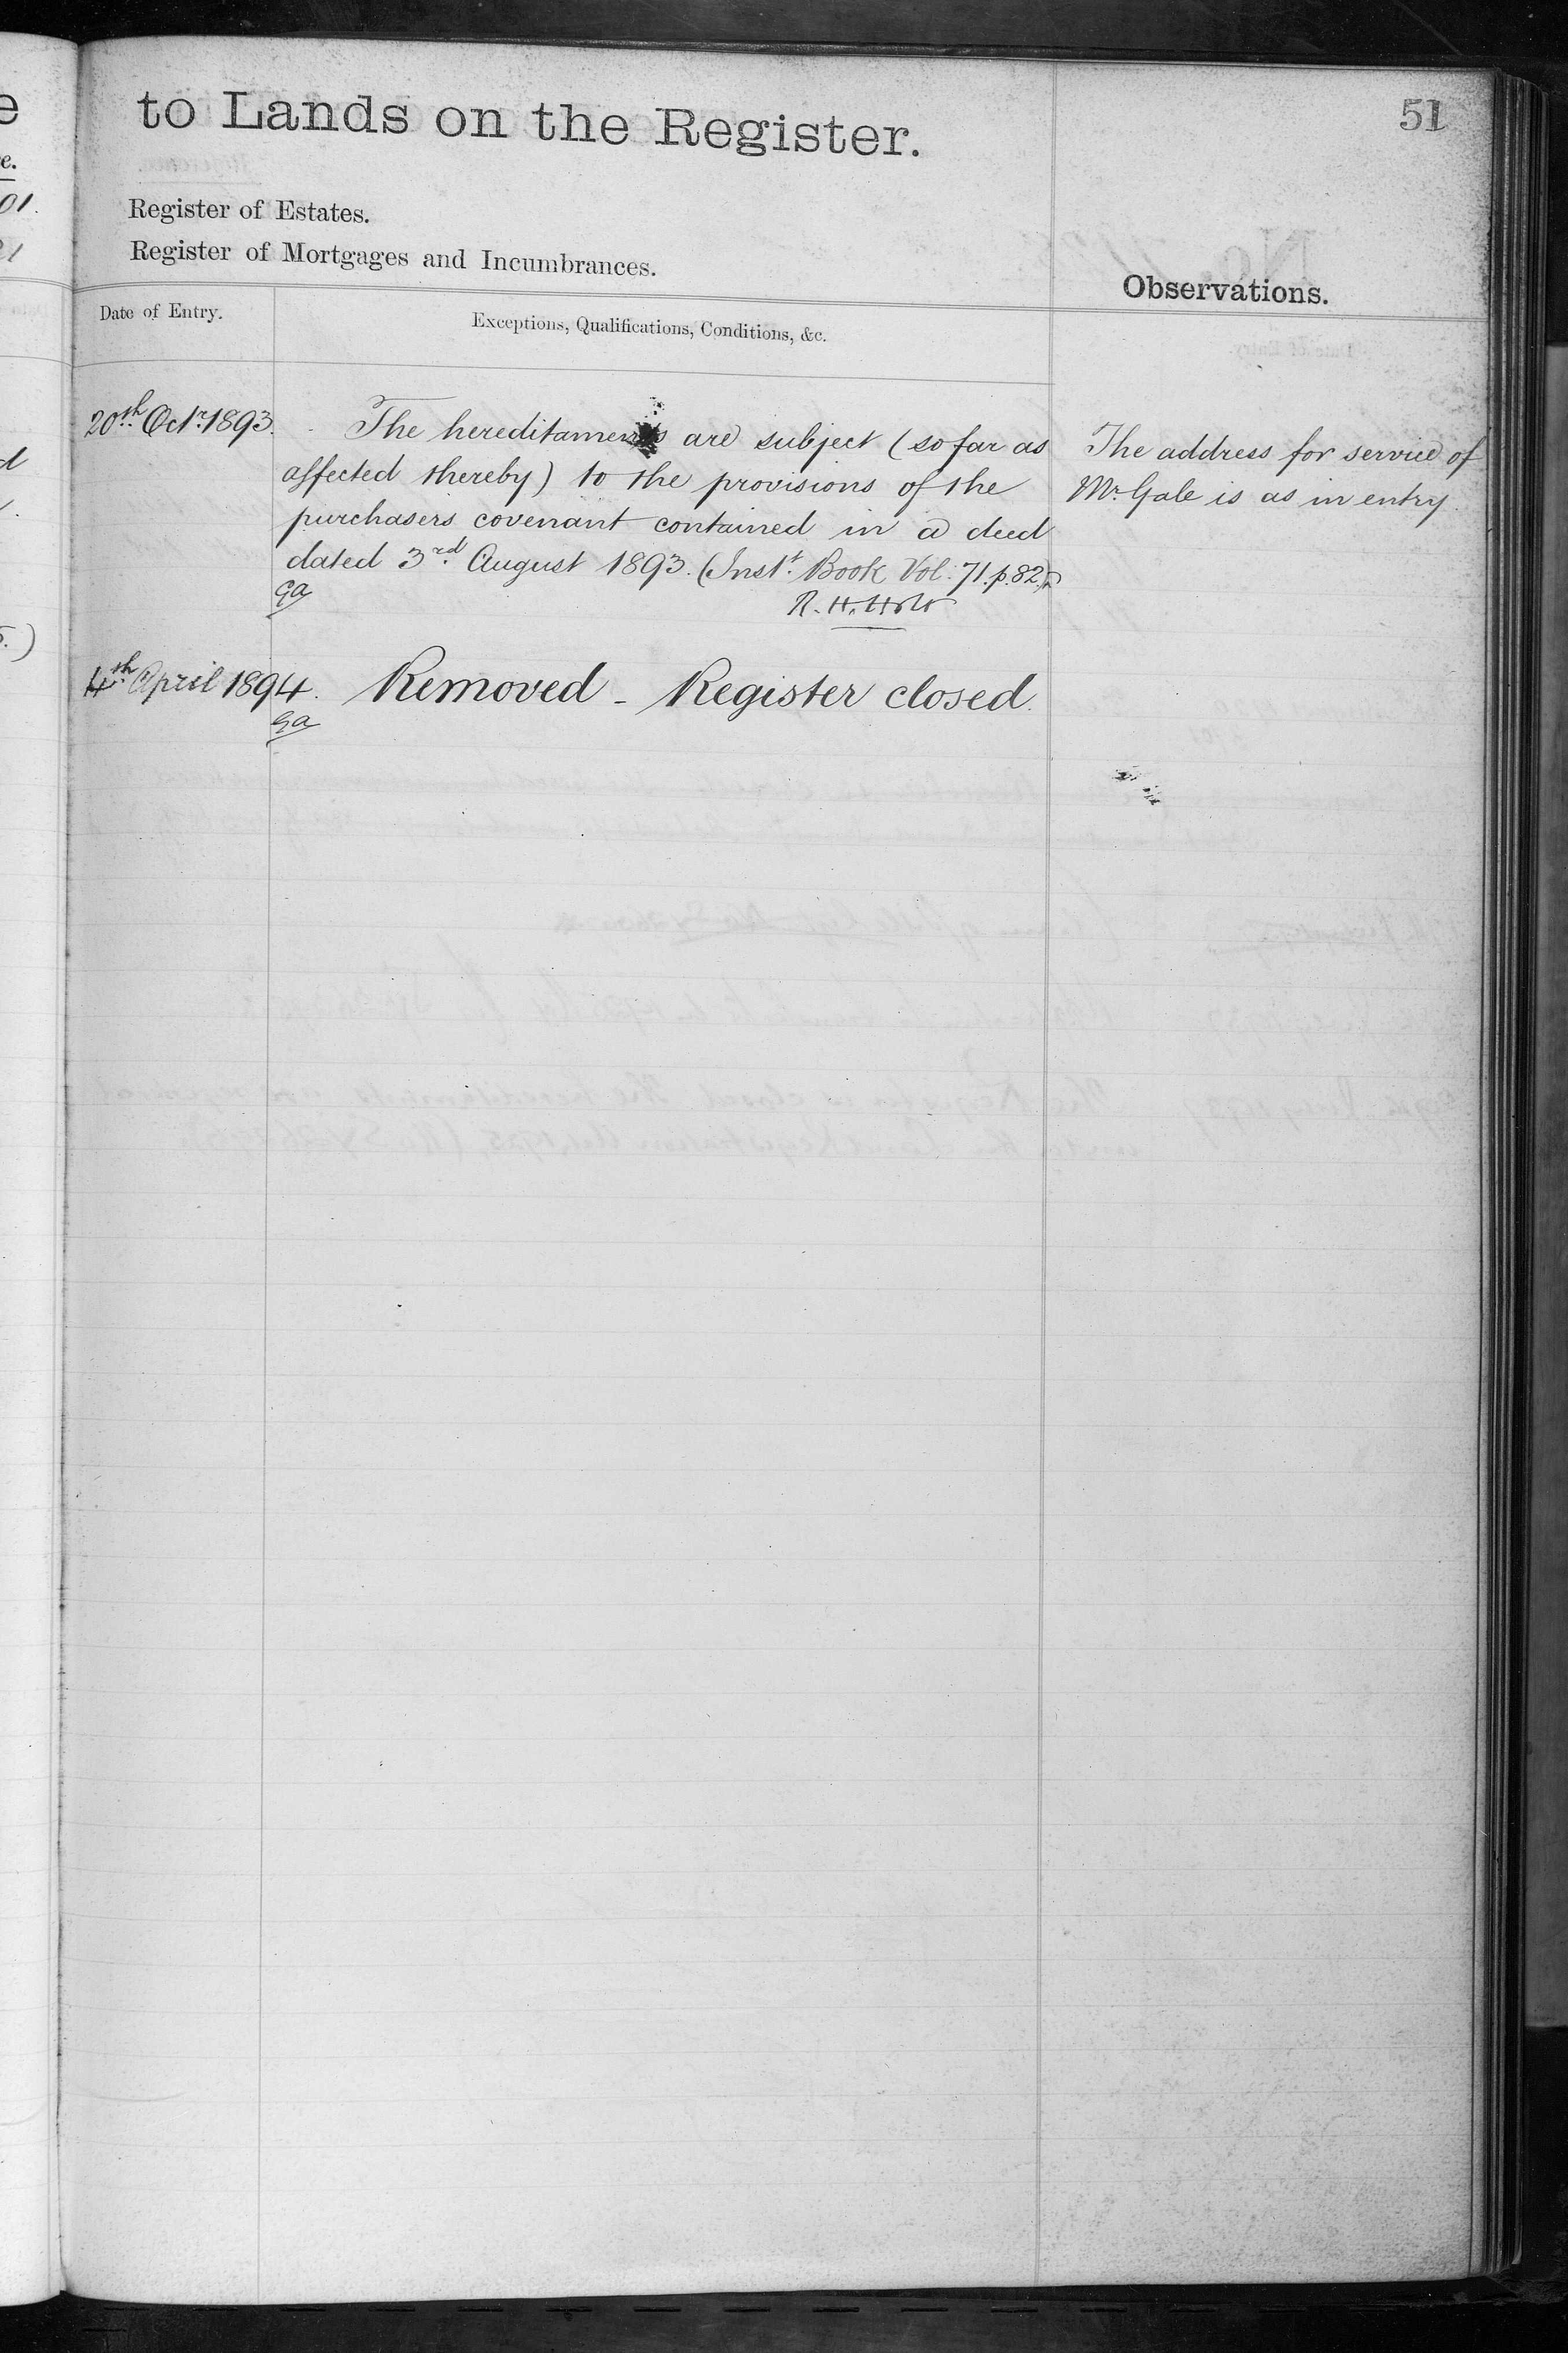 to Lands on the Register.
51
Register of Estates.
Register of Mortgages and Incumbrances.
Observations.
Date of Entry.
Exceptions, Qualifications, Conditions, &c.
20th Octr. 1893.
The hereditaments are subject (so far as
affected thereby) to the provisions of the
purchasers covenant contained in a deed
dated 3rd August 1893. (Inst. Book Vol. 71. p. 82.)
R. H. Holt
The address for service of
Mr. Gale is as in entry.
4th April 1894.
Removed - Register closed.